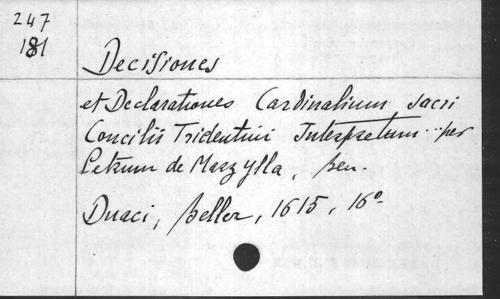 247
181
Decisiones
et Declarationes Cardinalium sacri
Concilii Tridentini Interpretum per
Petrum de Marzylla, Ben.
Duaci, Beller, 1615, 16º